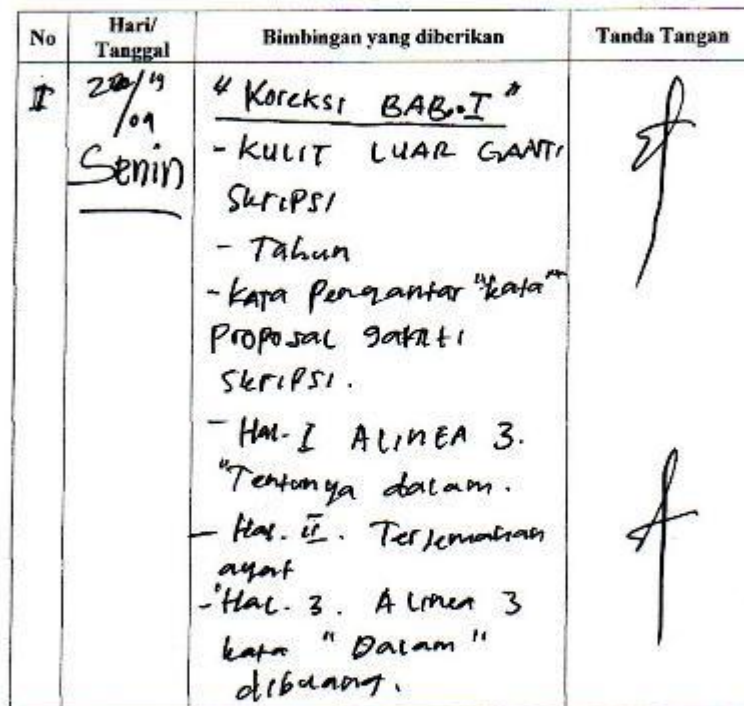 No Hari/ Tanggal Bimbingan yang diberikan Tanda Tangan
I
/09
Senin
" Koreksi BAB.I "
- KULIT LUAR GANTI
SKRIPSI
- Tahun
- Kata Pengantar "kata"
Proposal ganti
SKRIPSI.
- Hal. I ALINEA 3.
"Tentunya dalam.
- Hal. II. Terjemahan
ayat
- Hal. 3. Alinea 3
kata " Dalam "
dibuang.